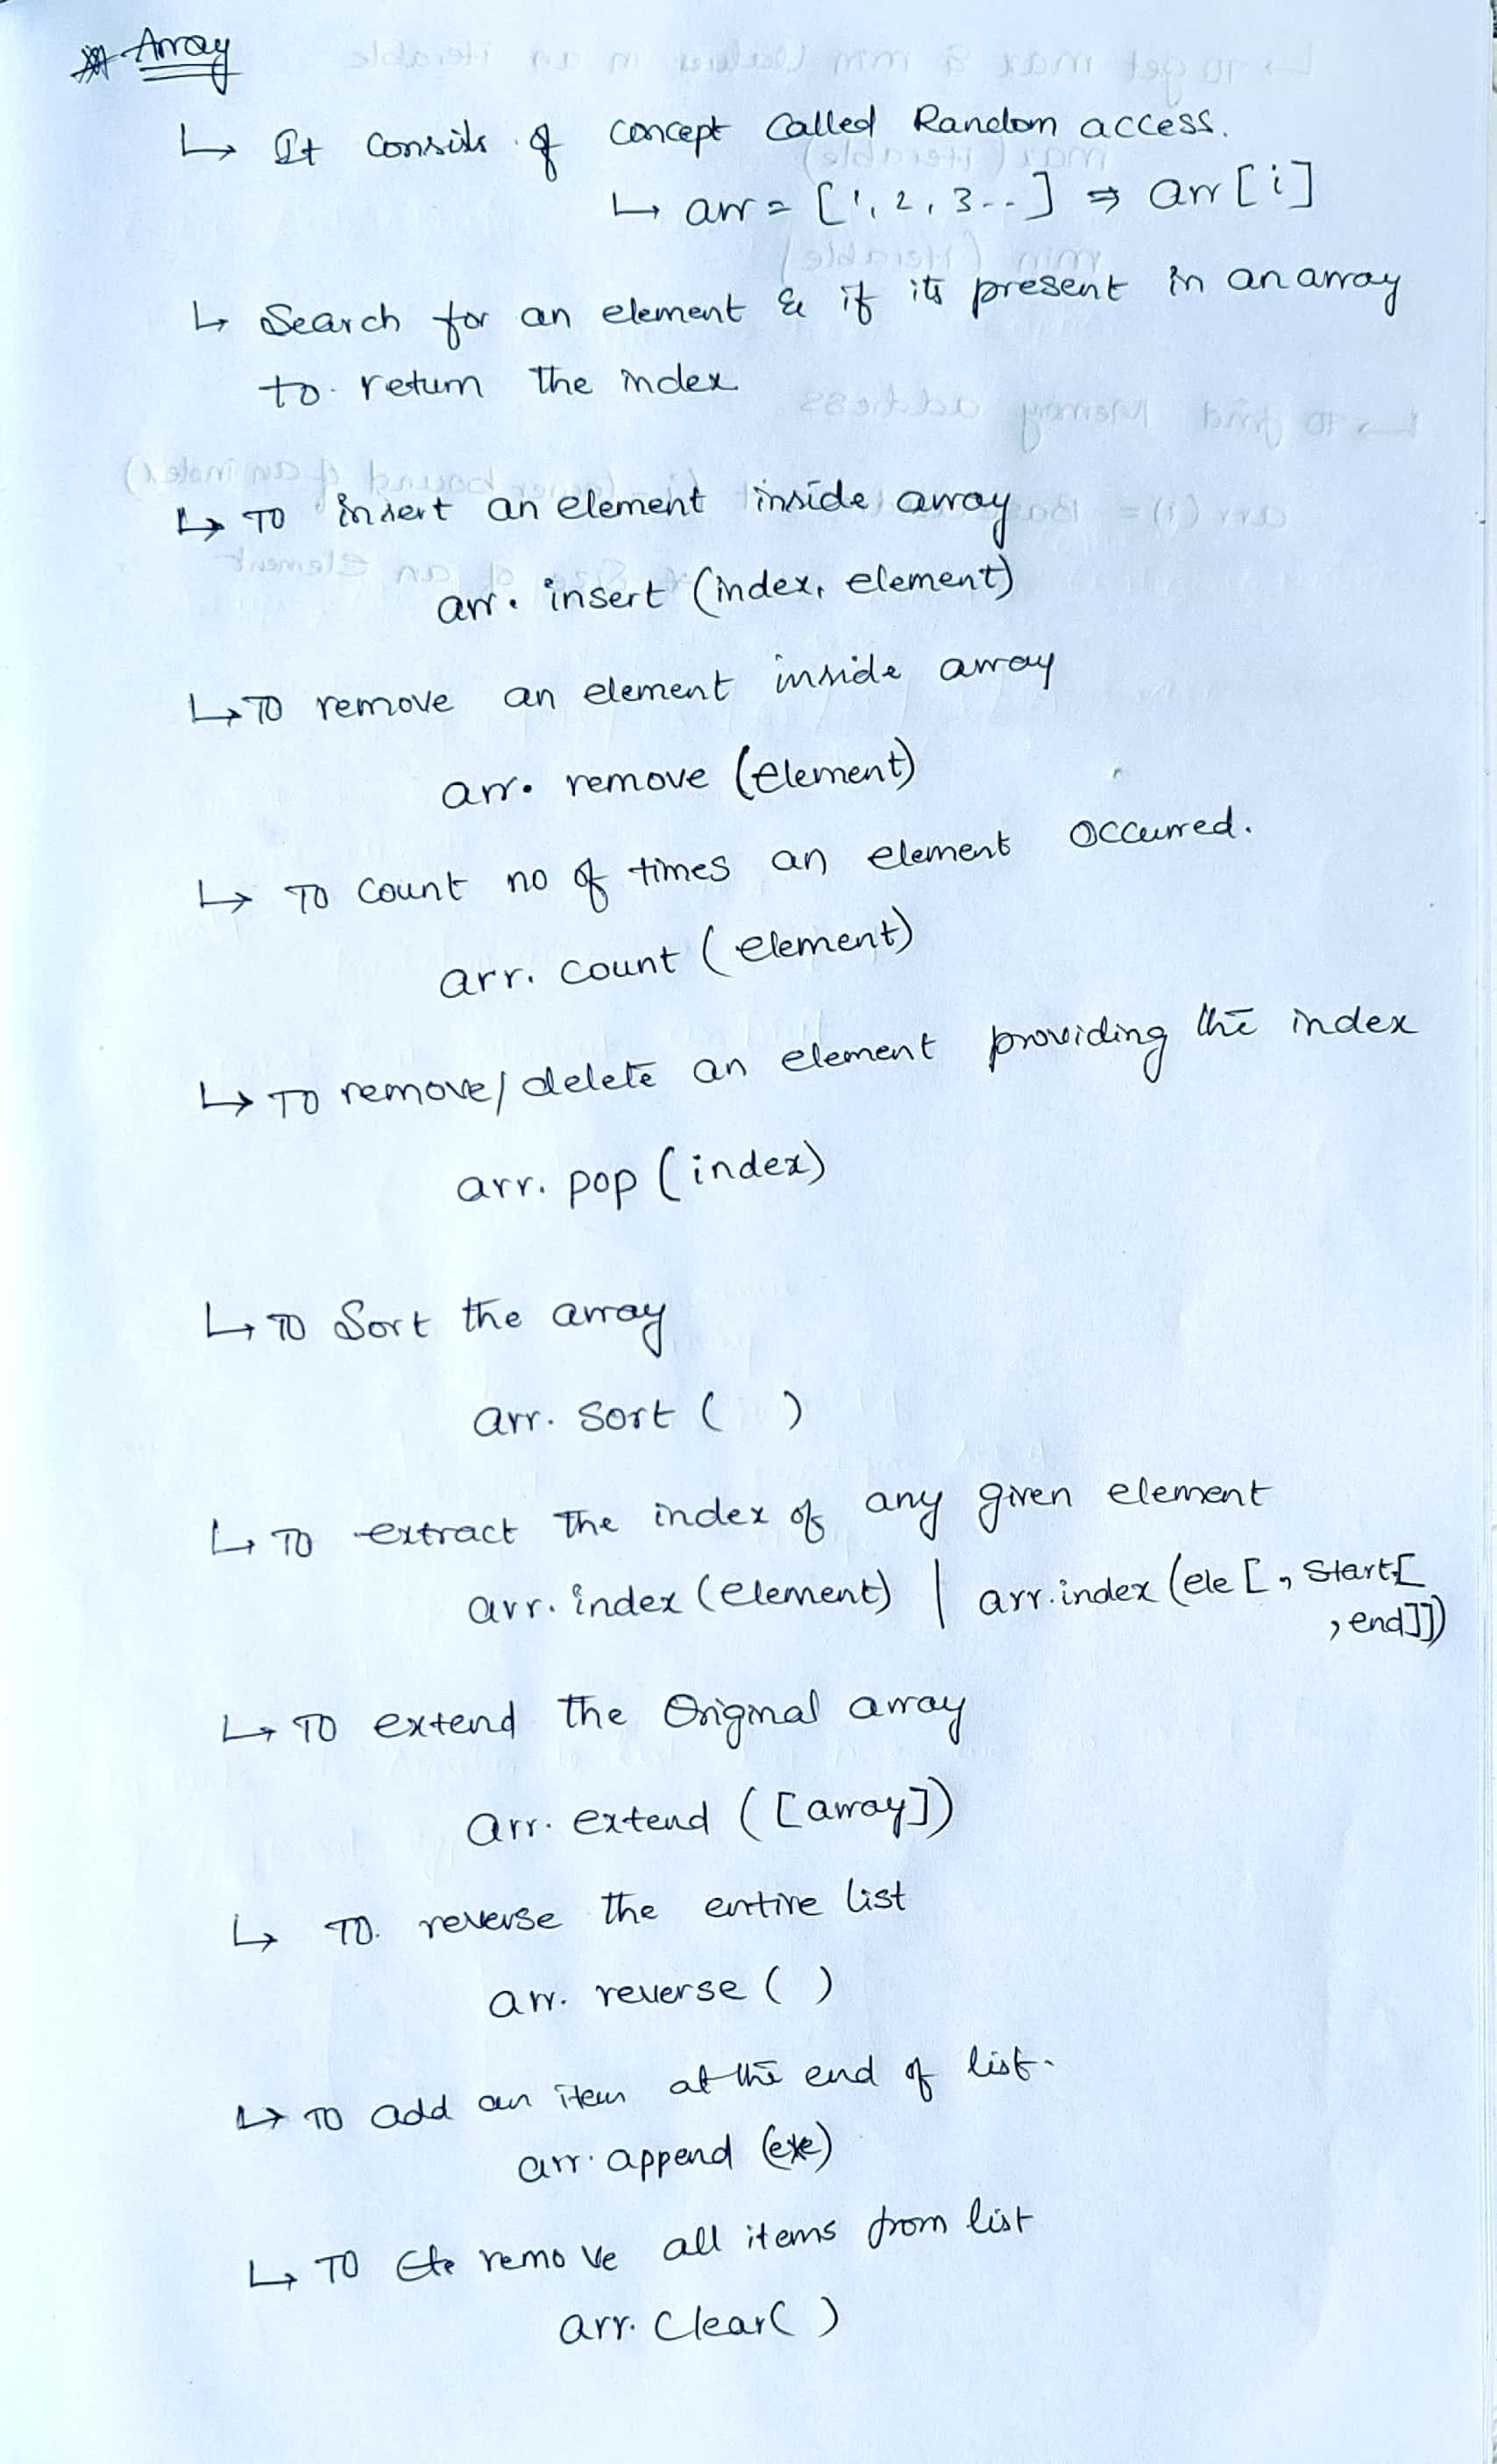 * Array
↳ It consits of concept called Random access.
↳ arr = [1, 2, 3--] ⇒ arr[i]
↳ Search for an element & if its present in an array
to return the index
↳ To insert an element inside array
arr. insert (index, element)
↳ To remove an element inside array
arr. remove (element)
↳ To count no of times an element occurred.
arr. count (element)
↳ To remove/delete an element providing the index
arr. pop (index)
↳ To Sort the array
arr. sort ( )
↳ To extract the index of any given element
arr. index (element) | arr.index (ele [, start [
, end]])
↳ To extend the Original array
arr. extend ([array])
↳ To. reverse the entire list
arr. reverse ( )
↳ To add an item at the end of list.
arr. append (ele)
↳ To remove all items from list
arr. Clear( )